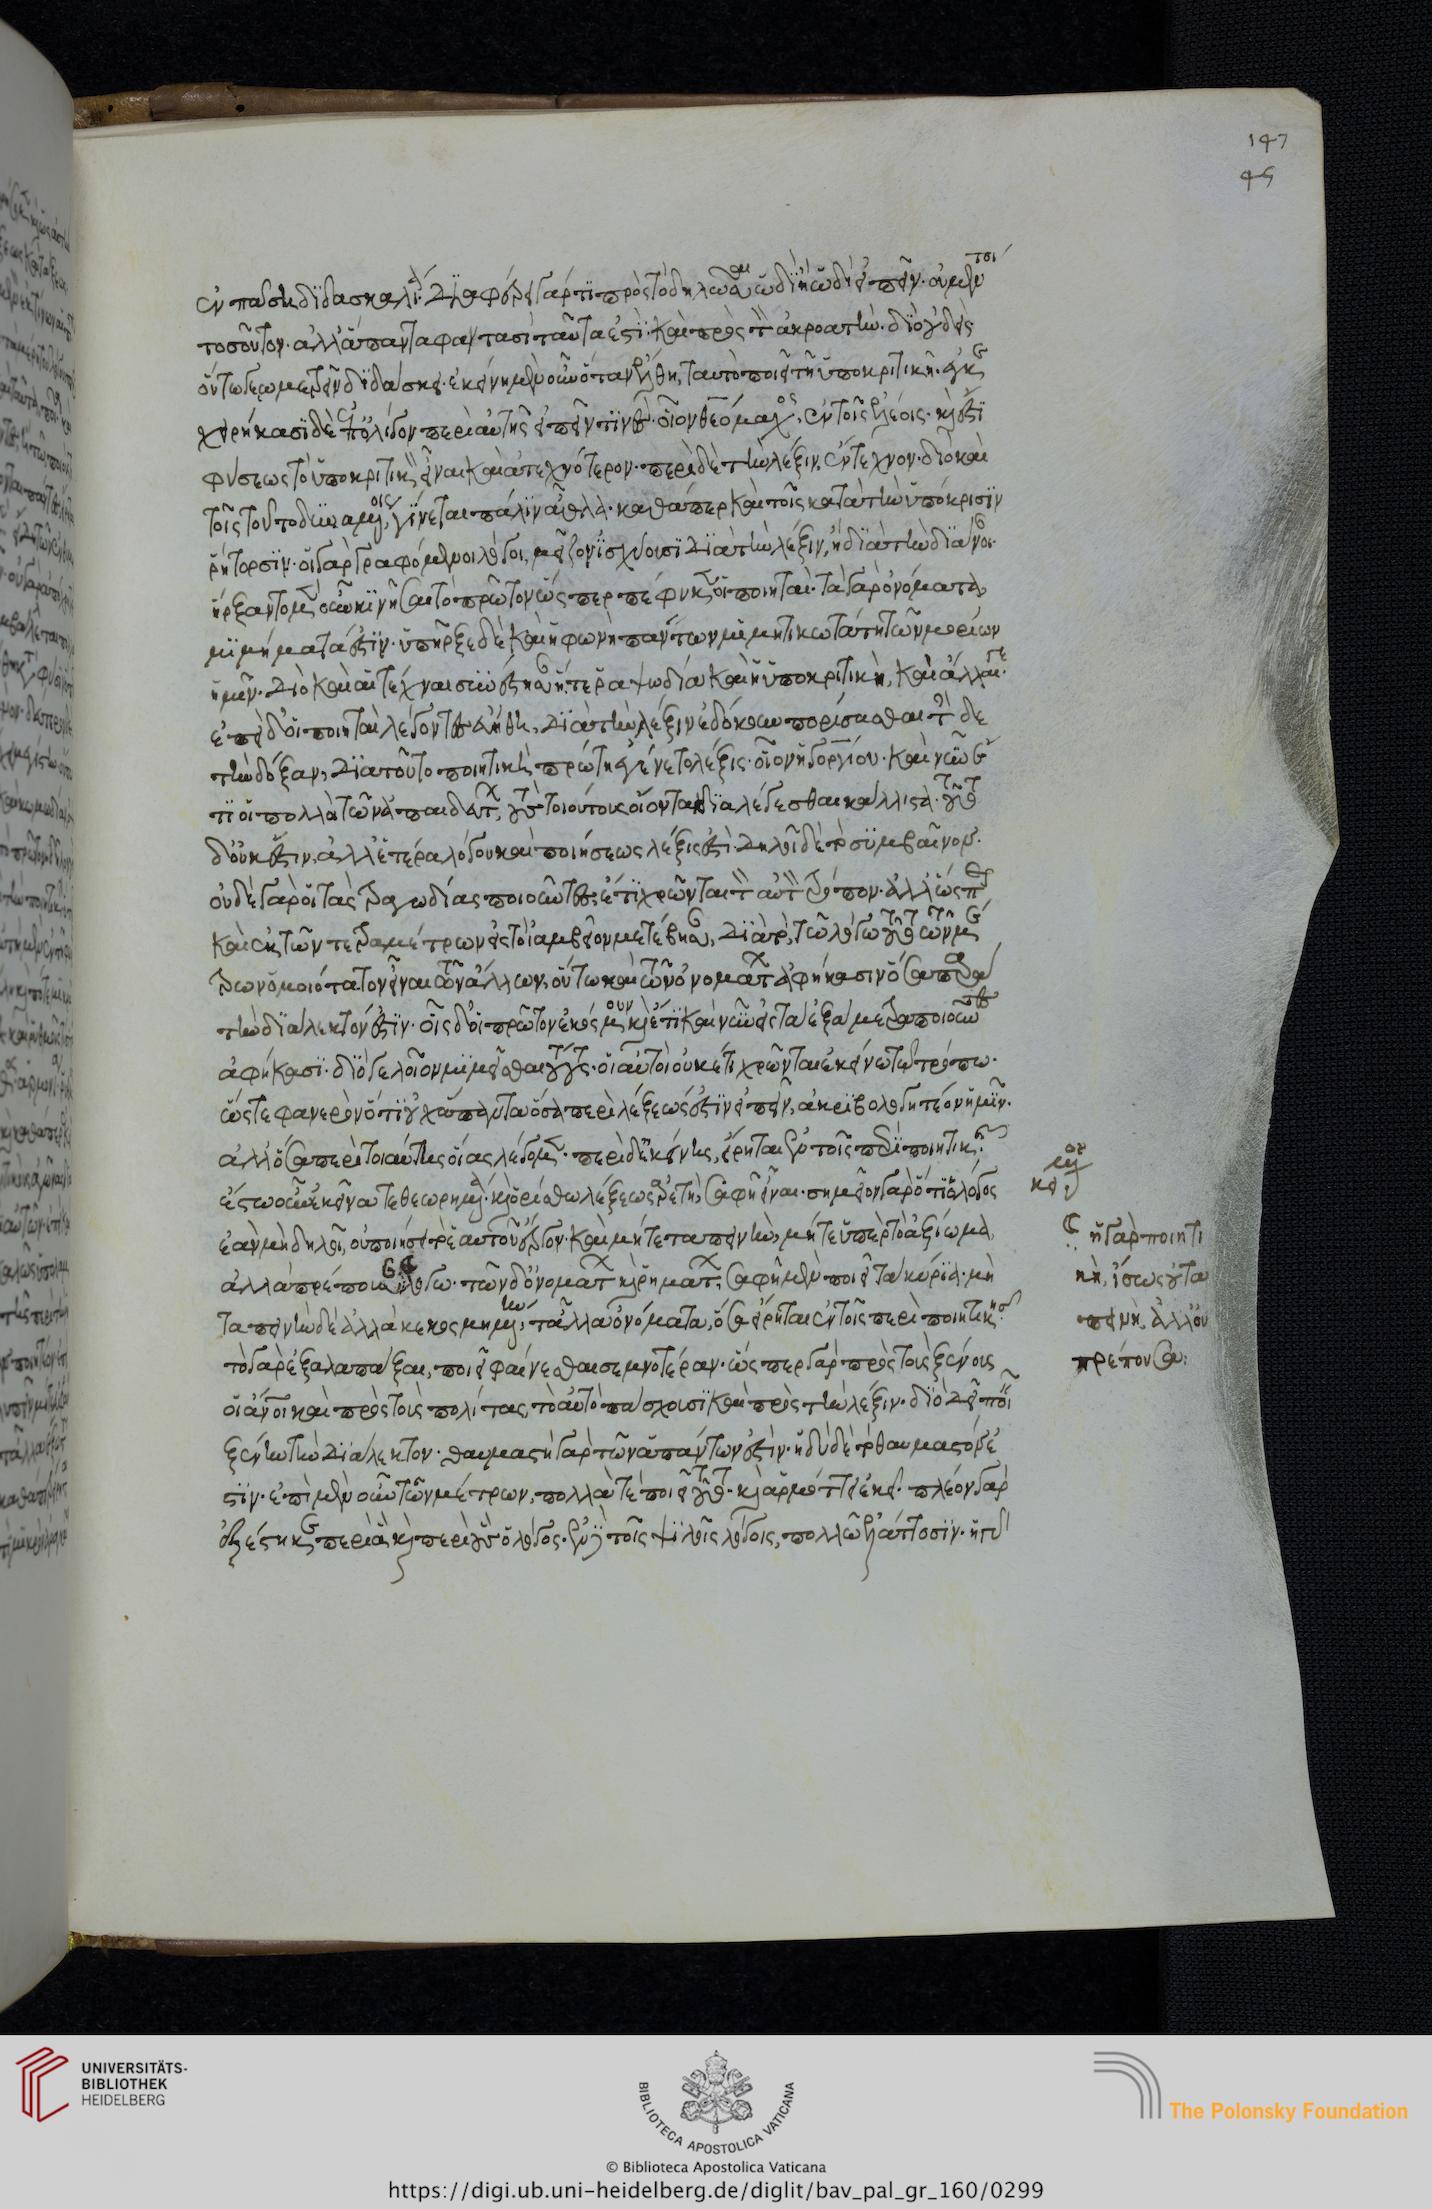 ἐν πάσῃ διδασκαλίᾳ· διαφέρει γάρ τι πρὸς τὸ δηλῶσαι ὡδὶ ἢ ὡδὶ εἰπεῖν· οὐ μέντοι
τοσοῦτον· ἀλλ' ἅπαντα φαντασία ταῦτα ἐστί· καὶ πρὸς τὸν ἀκροατήν· διὸ οὐδεὶς
οὕτω γεωμετρεῖν διδάσκει· ἐκείνη μὲν οὖν ὅταν ἔλθῃ, ταυτὸ ποιεῖ τῇ ὑποκριτικῇ· ἐγκε
χειρήκασι δὲ ἐπ' ὀλίγον περὶ αὐτῆς εἰπεῖν τινές· οἷον ἐν τοῖς ἐλέοις· καὶ ἔστι
φύσεως τὸ ὑποκριτικὸν εἶναι καὶ ἀτεχνότερον· περὶ δὲ τὴν λέξιν, ἔντεχνον· διὸ καὶ
τοῖς τοῦτο δυναμένοις, γίνεται πάλιν ἆθλα· καθάπερ καὶ τοῖς κατὰ τὴν ὑπόκρισιν
ῥήτορσιν· οἱ γὰρ γραφόμενοι λόγοι, μεῖζον ἰσχύουσι διὰ τὴν λέξιν, ἢ διὰ τὴν διάνοιαν·
ἤρξαντο μὲν οὖν κινῆσαι τὸ πρῶτον ὥσπερ πέφυκεν οἱ ποιηταί· τὰ γὰρ ὀνόματα,
μιμήματά ἐστιν· ὑπῆρξε δὲ καὶ ἡ φωνὴ πάντων μιμητικωτάτη τῶν μορίων
ἡμῖν· διὸ καὶ αἱ τέχναι συνέστησαν ἥ τε ῥαψωδία καὶ ἡ ὑποκριτικὴ, καὶ ἄλλαι γε·
ἐπεὶ δ' οἱ ποιηταὶ λέγοντες εὐήθη, διὰ τὴν λέξιν ἐδόκουν πορίσασθαι τήνδε
τὴν δόξαν, διὰ τοῦτο ποιητικὴ πρώτη ἐγένετο λέξις· οἷον ἡ γοργίου· καὶ νῦν ἔ
τι οἱ πολλοὶ τῶν ἀπαιδεύτων, τοὺς τοιούτους οἴονται διαλέγεσθαι κάλλιστα· τοῦτο
δ' οὐκ ἔστιν, ἀλλ' ἑτέρα λόγου καὶ ποιήσεως λέξις ἐστί· δηλοῖ δὲ τὸ συμβαῖνον·
οὐδὲ γὰρ οἱ τὰς τραγωδίας ποιοῦντες, ἔτι χρῶνται τὸν αὐτὸν τρόπον· ἀλλ' ὥσπερ
καὶ ἐκ τῶν τετραμέτρων εἰς τὸ ἰαμβεῖον μετέβησαν, διὰ τὸ, τῷ λόγῳ τοῦτο τῶν μέ
τρων ὁμοιότατον εἶναι τῶν ἄλλων, οὕτω καὶ τῶν ὀνομάτων ἀφήκασιν ὅσα παρὰ
τὴν διάλεκτόν ἐστιν· οἷς δ' οἱ πρῶτον ἐκόσμουν καὶ ἔτι καὶ νῦν εἰς τὰ ἑξάμετρα ποιοῦντες
ἀφήκασι· διὸ γελοῖον μιμεῖσθαι τούτους· οἳ αὐτοὶ οὐκέτι χρῶνται ἐκείνῳ τῷ τρόπῳ·
ὥστε φανερὸν ὅτι οὐχ ἅπαντα ὅσα περὶ λέξεώς ἐστιν εἰπεῖν, ἀκριβολογητέον ἡμῖν·
ἀλλ' ὅσα περὶ τοιαύτης οἵας λέγομεν· περὶ δ' ἐκείνης, εἴρηται ἐν τοῖς περὶ ποιητικῆς·
ἔστω οὖν ἐκεῖνα τεθεωρημένα· καὶ ὡρίσθω λέξεως ἀρετὴ, σαφῆ εἶναι· σημεῖον γὰρ ὅτι ὁ λόγος
ἐὰν μὴ δηλοῖ, οὐ ποιήσει τὸ ἑαυτοῦ ἔργον· καὶ μήτε ταπεινὴν, μήτε ὑπὲρ τὸ ἀξίωμα,
ἀλλὰ πρέπουσαν λόγῳ· τῶν δ' ὀνομάτων καὶ ῥημάτων, σαφῆ μὲν ποιεῖ τὰ κύρια· μὴ
ταπεινὴν δὲ ἀλλὰ κεκοσμημένην, τἆλλα ὀνόματα, ὅσα εἴρηται ἐν τοῖς περὶ ποιητικῆς·
τὸ γὰρ ἐξαλλάξαι, ποιεῖ φαίνεσθαι σεμνοτέραν· ὥσπερ γὰρ πρὸς τοὺς ξένους
οἱ ἄνθρωποι καὶ πρὸς τοὺς πολίτας, τὸ αὐτὸ πάσχουσι καὶ πρὸς τὴν λέξιν· διὸ δεῖ ποιεῖν
ξένην τὴν διάλεκτον· θαυμασταὶ γὰρ τῶν ἀπάντων ἐστίν· ἡδὺ δὲ τὸ θαυμαστόν ἐ
στιν· ἐπὶ μὲν οὖν τῶν μέτρων, πολλά τε ποιεῖ τοῦτο· καὶ ἁρμόττει ἐκεῖ· πλέον γὰρ
ἐξέστηκε περὶ ἃ καὶ περὶ οὓς ὁ λόγος· ἐν δὲ τοῖς ψιλοῖς λόγοις, πολλῷ ἐλάττοσιν· ἡ γὰρ
ἡ γὰρ ποιητι
κὴ, ἴσως οὐ τα
πεινὴ, ἀλλ' οὐ
πρέπουσα:
147
UNIVERSITÄTS-
BIBLIOTHEK
HEIDELBERG
BIBLIOTECA APOSTOLICA VATICANA
© Biblioteca Apostolica Vaticana
The Polonsky Foundation
https://digi.ub.uni-heidelberg.de/diglit/bav_pal_gr_160/0299